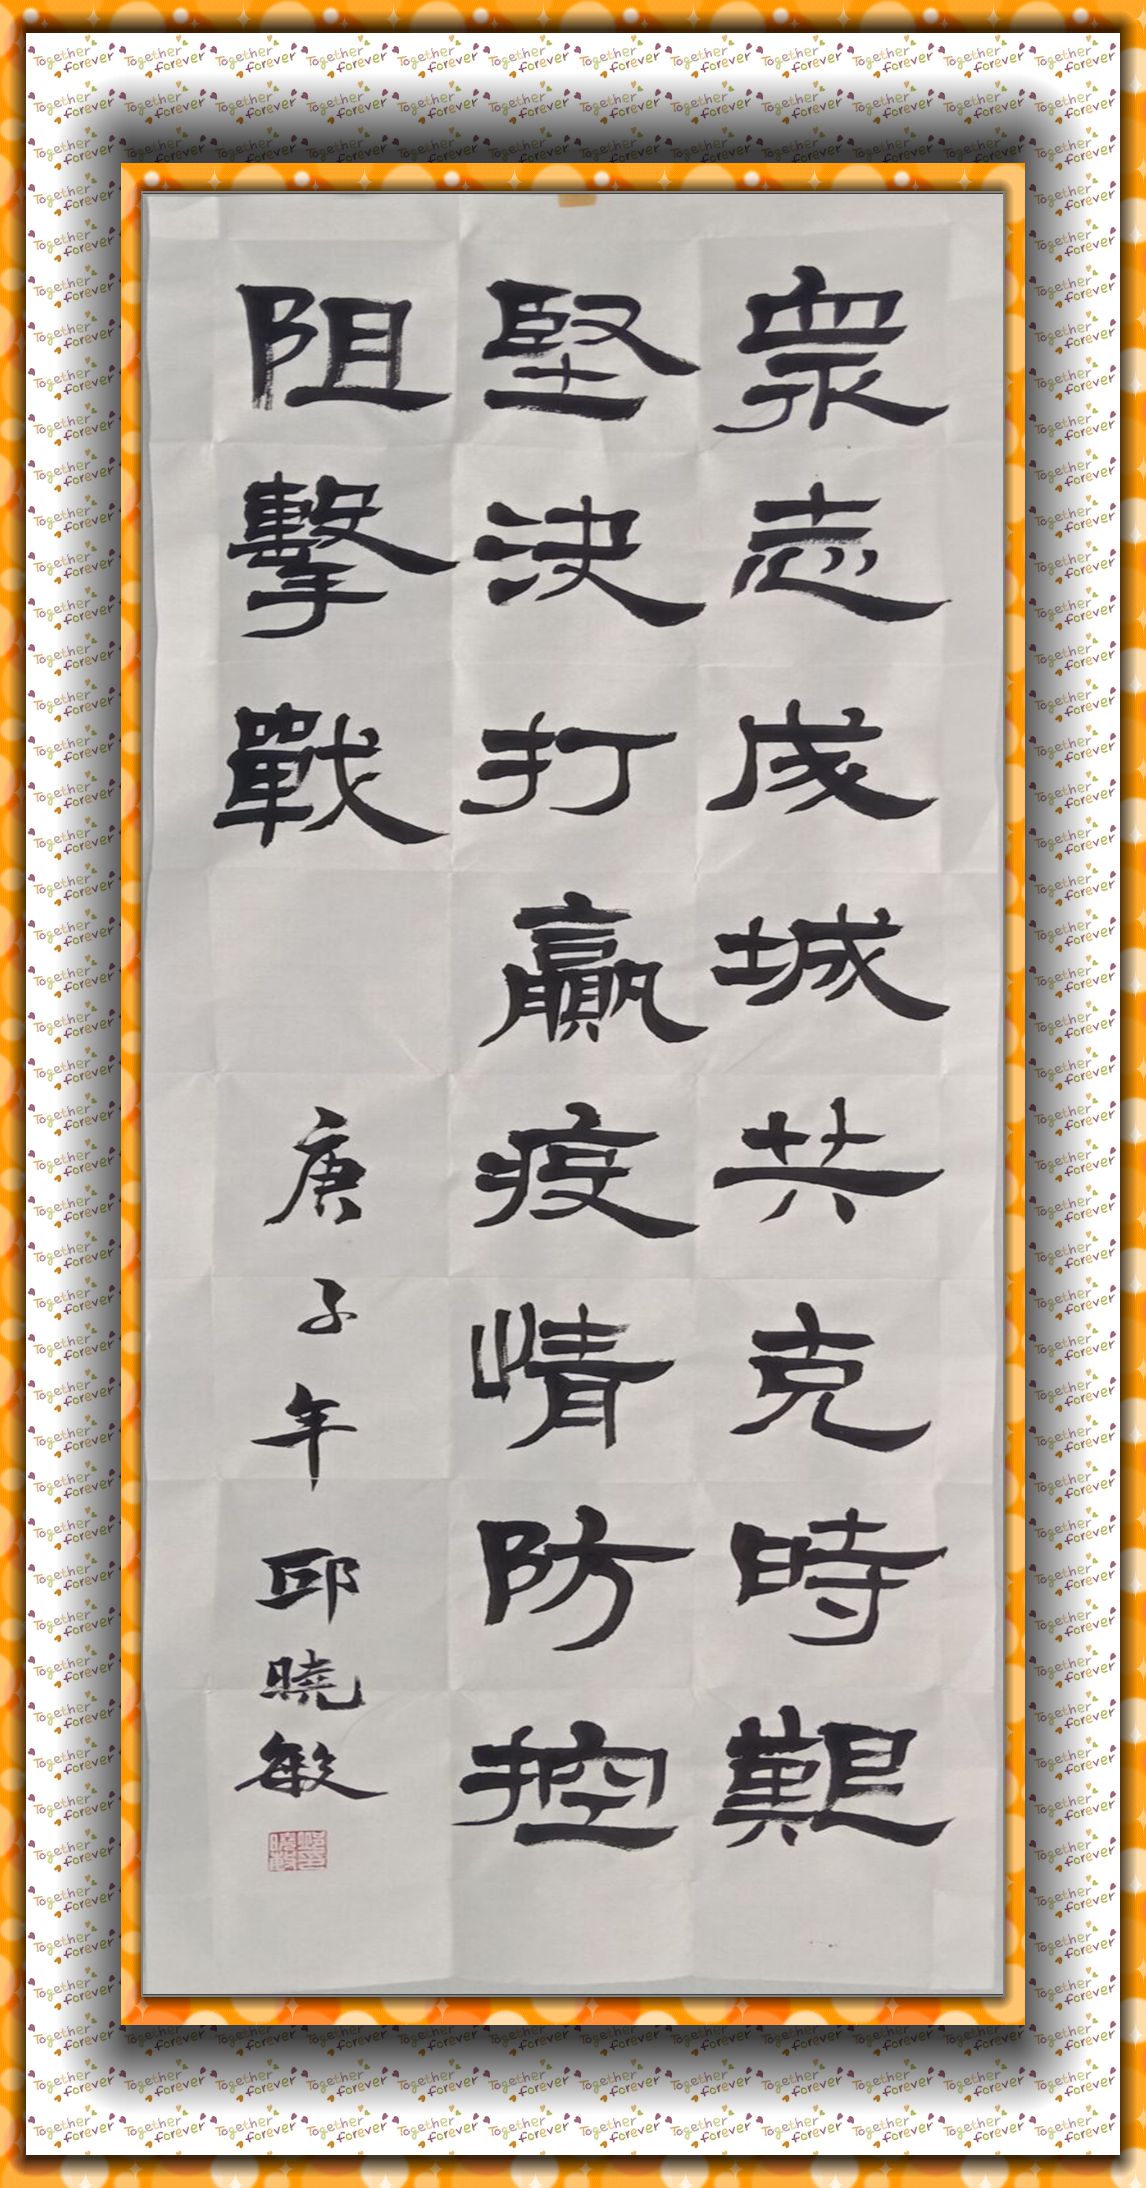 眾志成城共克時艱
堅決打贏疫情防控
阻擊戰
庚子年 邱曉敏
Together forever